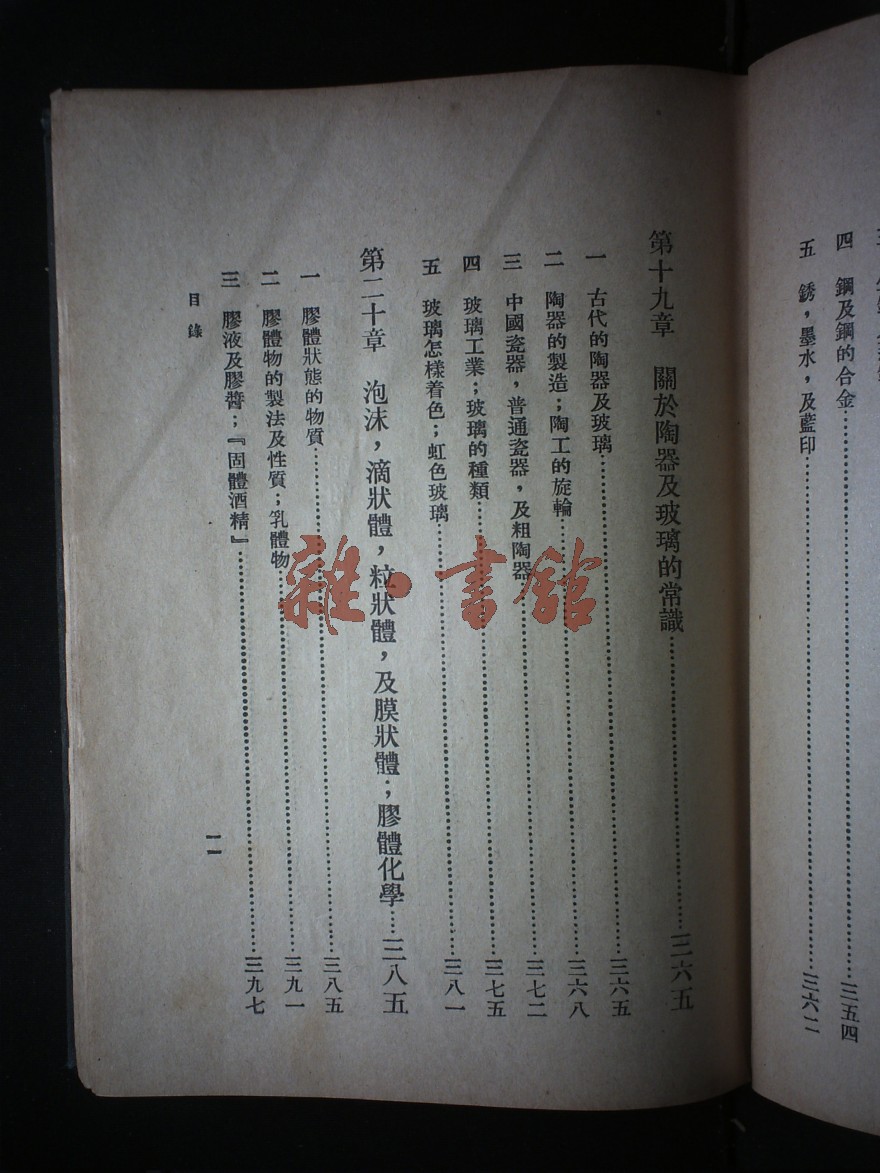 四　鋼及鋼的合金……三五四
五　銹，墨水，及藍印……三六二
第十九章　關於陶器及玻璃的常識……三六五
一　古代的陶器及玻璃……三六五
二　陶器的製造；陶工的旋輪……三六八
三　中國瓷器，普通瓷器，及粗陶器……三七二
四　玻璃工業；玻璃的種類……三七五
五　玻璃怎樣着色；虹色玻璃……三八一
第二十章　泡沫，滴狀體，粒狀體，及膜狀體；膠體化學……三八五
一　膠體狀態的物質……三八五
二　膠體物的製法及性質；乳體物……三九一
三　膠液及膠醬；『固體酒精』……三九七
目錄
一一
雜·書館